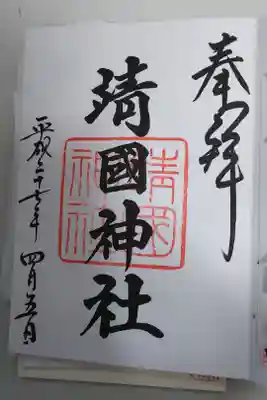 奉拝
靖國神社
平成二十七年 四月五日
靖国
神社